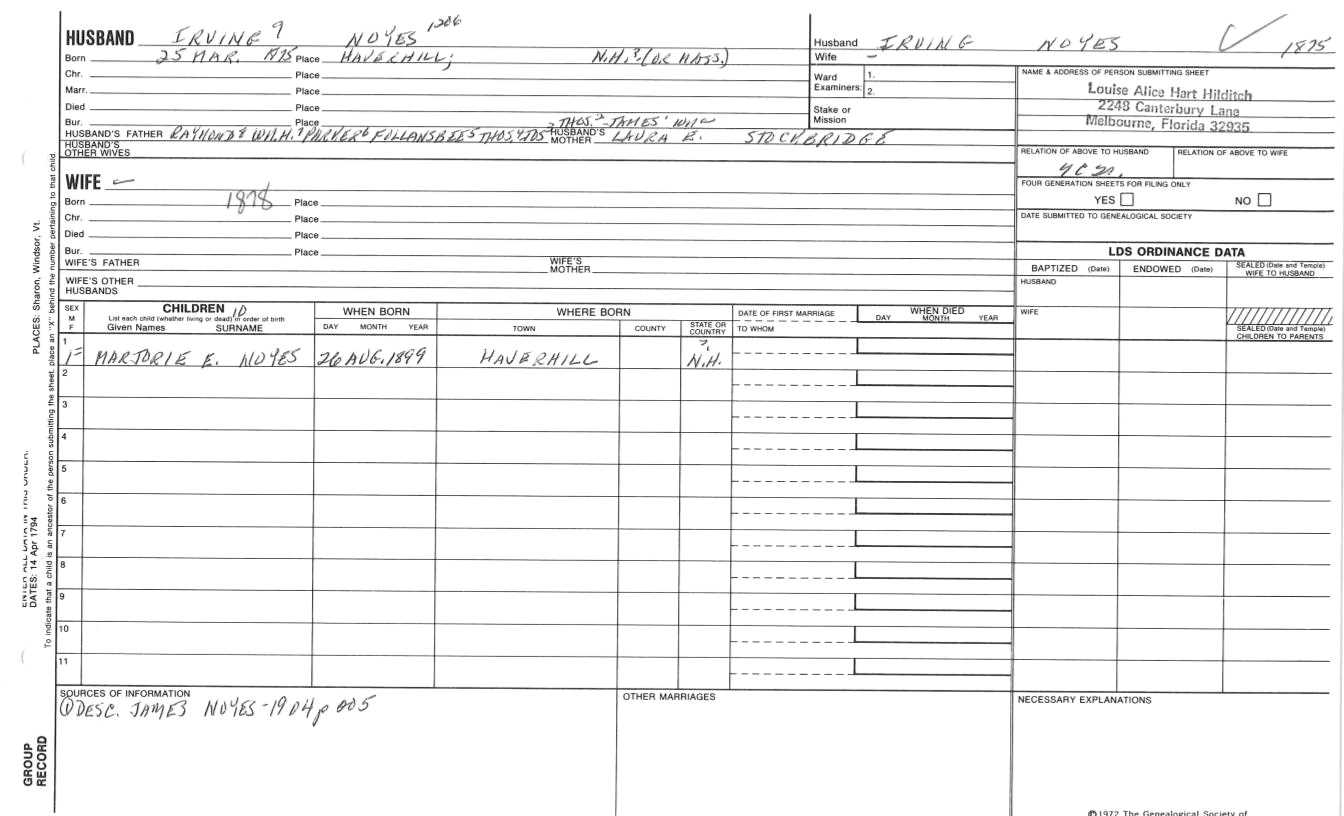 HUSBAND IRVING 9 NOYES 1206
Born 25 MAR. 1875 Place HAVERHILL; N.H.? (OR MASS.)
Chr. Place
Marr. Place
Died Place
Bur. Place THOS.2 - JAMES1 WILL
HUSBAND'S FATHER RAYMOND8 WILH.7 PARKER6 FOLLANSBEE5 THOS.4 JOS HUSBAND'S MOTHER LAURA E. STOCKBRIDGE
HUSBAND'S OTHER WIVES
WIFE
Born 1878 Place
Chr. Place
Died Place
Bur. Place
WIFE'S FATHER WIFE'S MOTHER
WIFE'S OTHER HUSBANDS
Husband IRVING NOYES 1875
Wife -
Ward Examiners: 1.
2.
Stake or Mission
NAME & ADDRESS OF PERSON SUBMITTING SHEET
Louise Alice Hart Hilditch
2248 Canterbury Lane
Melbourne, Florida 32935
RELATION OF ABOVE TO HUSBAND RELATION OF ABOVE TO WIFE
FOUR GENERATION SHEETS FOR FILING ONLY
YES NO
DATE SUBMITTED TO GENEALOGICAL SOCIETY
LDS ORDINANCE DATA
BAPTIZED (Date) ENDOWED (Date) SEALED (Date and Temple) WIFE TO HUSBAND
HUSBAND
WIFE
SEALED (Date and Temple) CHILDREN TO PARENTS
SEX M F
CHILDREN
List each child (whether living or dead) in order of birth
Given Names SURNAME
WHEN BORN
DAY MONTH YEAR
WHERE BORN
TOWN COUNTY STATE OR COUNTRY
DATE OF FIRST MARRIAGE
TO WHOM
WHEN DIED
DAY MONTH YEAR
1 F MARJORIE E. NOYES 26 AUG. 1899 HAVERHILL ? N.H.
2
3
4
5
6
7
8
9
10
11
SOURCES OF INFORMATION
① DESC. JAMES NOYES - 1904 p 205
OTHER MARRIAGES
NECESSARY EXPLANATIONS
©1972 The Genealogical Society of
PLACES: Sharon, Windsor, Vt.
ENTER ALL DATA IN THIS ORDER:
DATES: 14 Apr 1794
To indicate that a child is an ancestor of the person submitting the sheet, place an "X" behind the number pertaining to that child
GROUP
RECORD